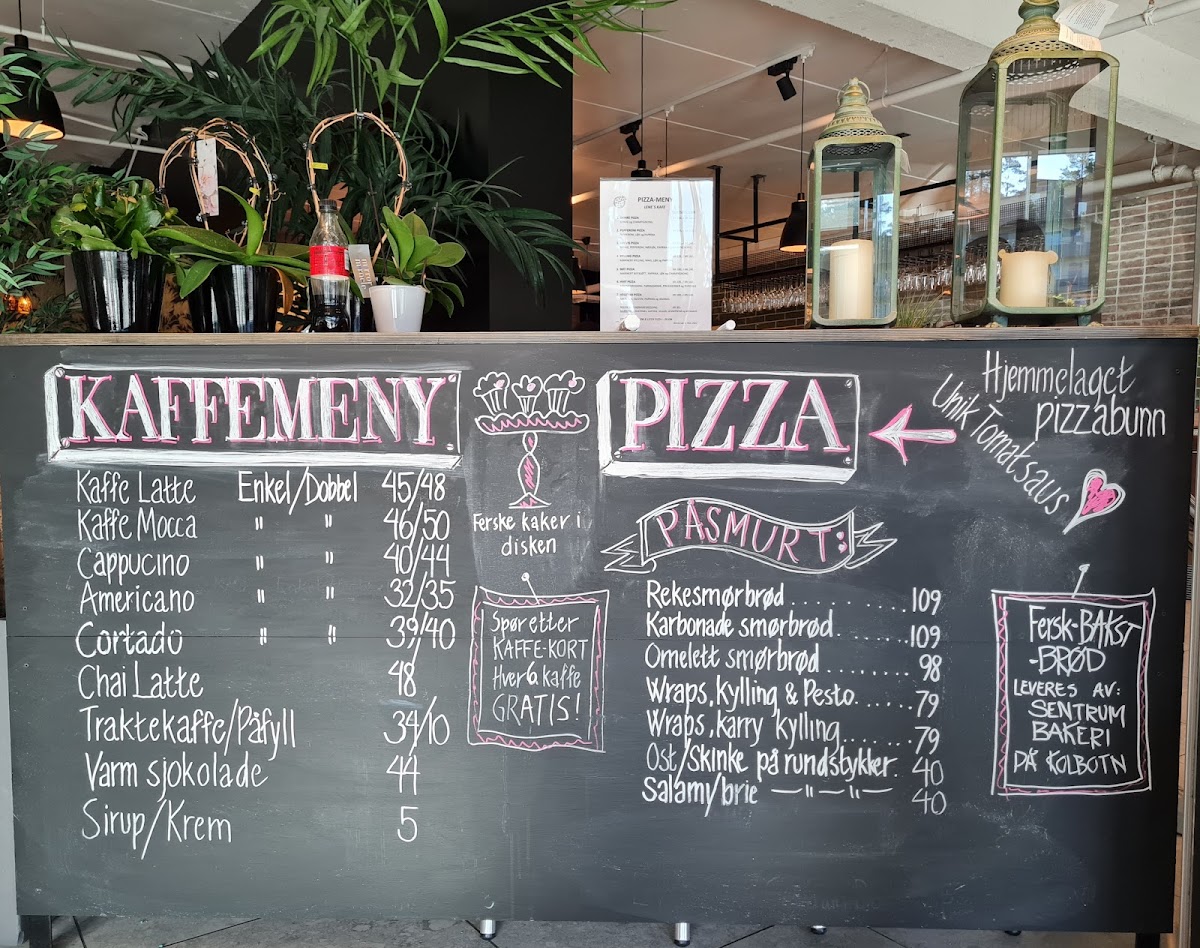 PIZZA-MENY
KAFFEMENY
Kaffe Latte Enkel/Dobbel 45/48
Kaffe Mocca " " 46/50
Cappucino " " 40/44
Americano " " 32/35
Cortado " " 39/40
Chai Latte 48
Traktekaffe/Påfyll 34/10
Varm sjokolade 44
Sirup/Krem 5
Ferske kaker i
disken
Spør etter
KAFFE-KORT
Hver 6. kaffe
GRATIS!
PIZZA
Hjemmelaget
pizzabunn
Unik Tomatsaus
PÅSMURT:
Rekesmørbrød..........109
Karbonade smørbrød.......109
Omelett smørbrød........98
Wraps, kylling & Pesto.....79
Wraps, karry kylling.......79
Ost/skinke på rundstykker. 40
Salamy/brie —"—"— 40
Fersk-BAKST
-BRØD
LEVERES AV:
SENTRUM
BAKERI
PÅ KOLBOTN